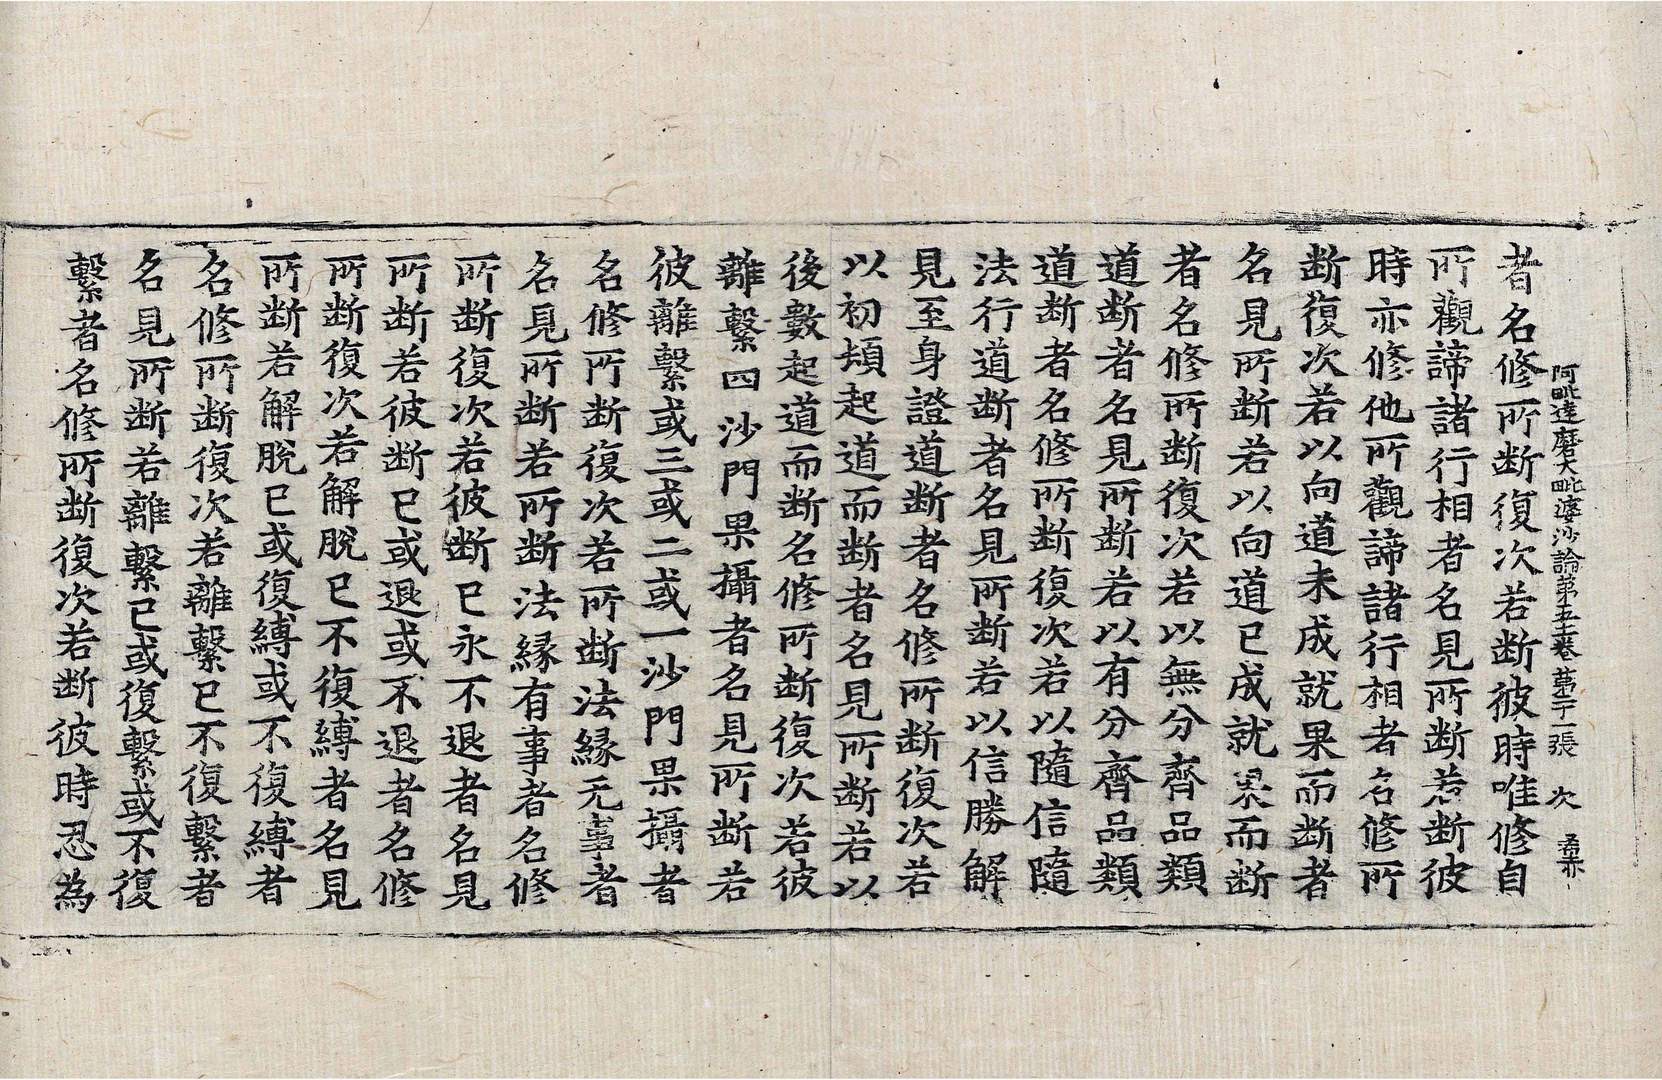 阿毗達磨大毗婆沙論第五十一卷 第十一張 次
者名修所断復次若断彼時唯修自
所觀諦諸行相者名見所断若断彼
時亦修他所觀諦諸行相者名修所
断復次若以向道未成就果而断者
名見所断若以向道已成就果而断
者名修所断復次若以無分齊品類
道断者名見所断若以有分齊品類
道断者名修所断復次若以隨信隨
法行道断者名見所断若以信勝解
見至身證道断者名修所断復次若
以初頓起道而断者名見所断若以
後數起道而断名修所断復次若彼
離繫四沙門果攝者名見所断若
彼離繫或三或二或一沙門果攝者
名修所断復次若所断法緣无事者
名見所断若所断法緣有事者名修
所断復次若彼断已永不退者名見
所断若彼断已或退或不退者名修
所断復次若解脫已不復縛者名見
所断若解脫已或復縛或不復縛者
名修所断復次若離繫已不復繫者
名見所断若離繫已或復繫或不復
繫者名修所断復次若断彼時忍為